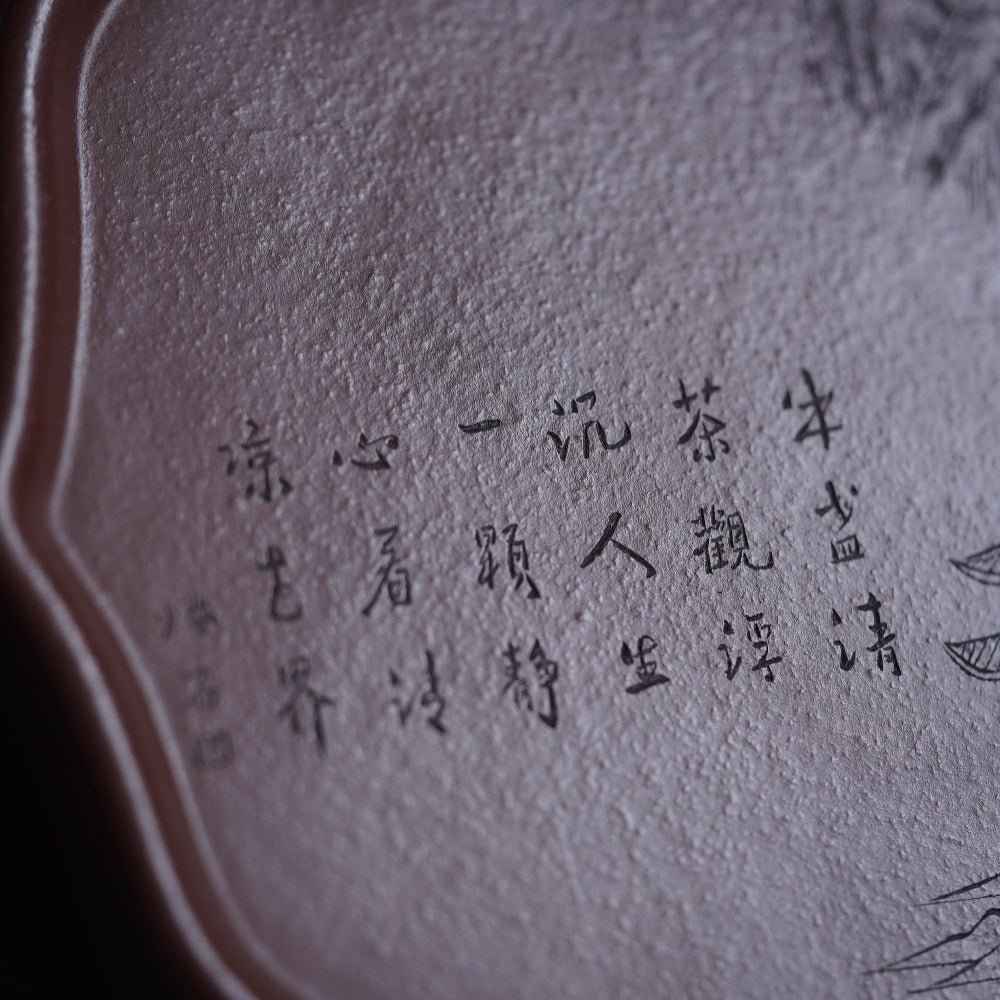 半盏清
茶觀浮
沉人生
一顆静
心看清
凉世界